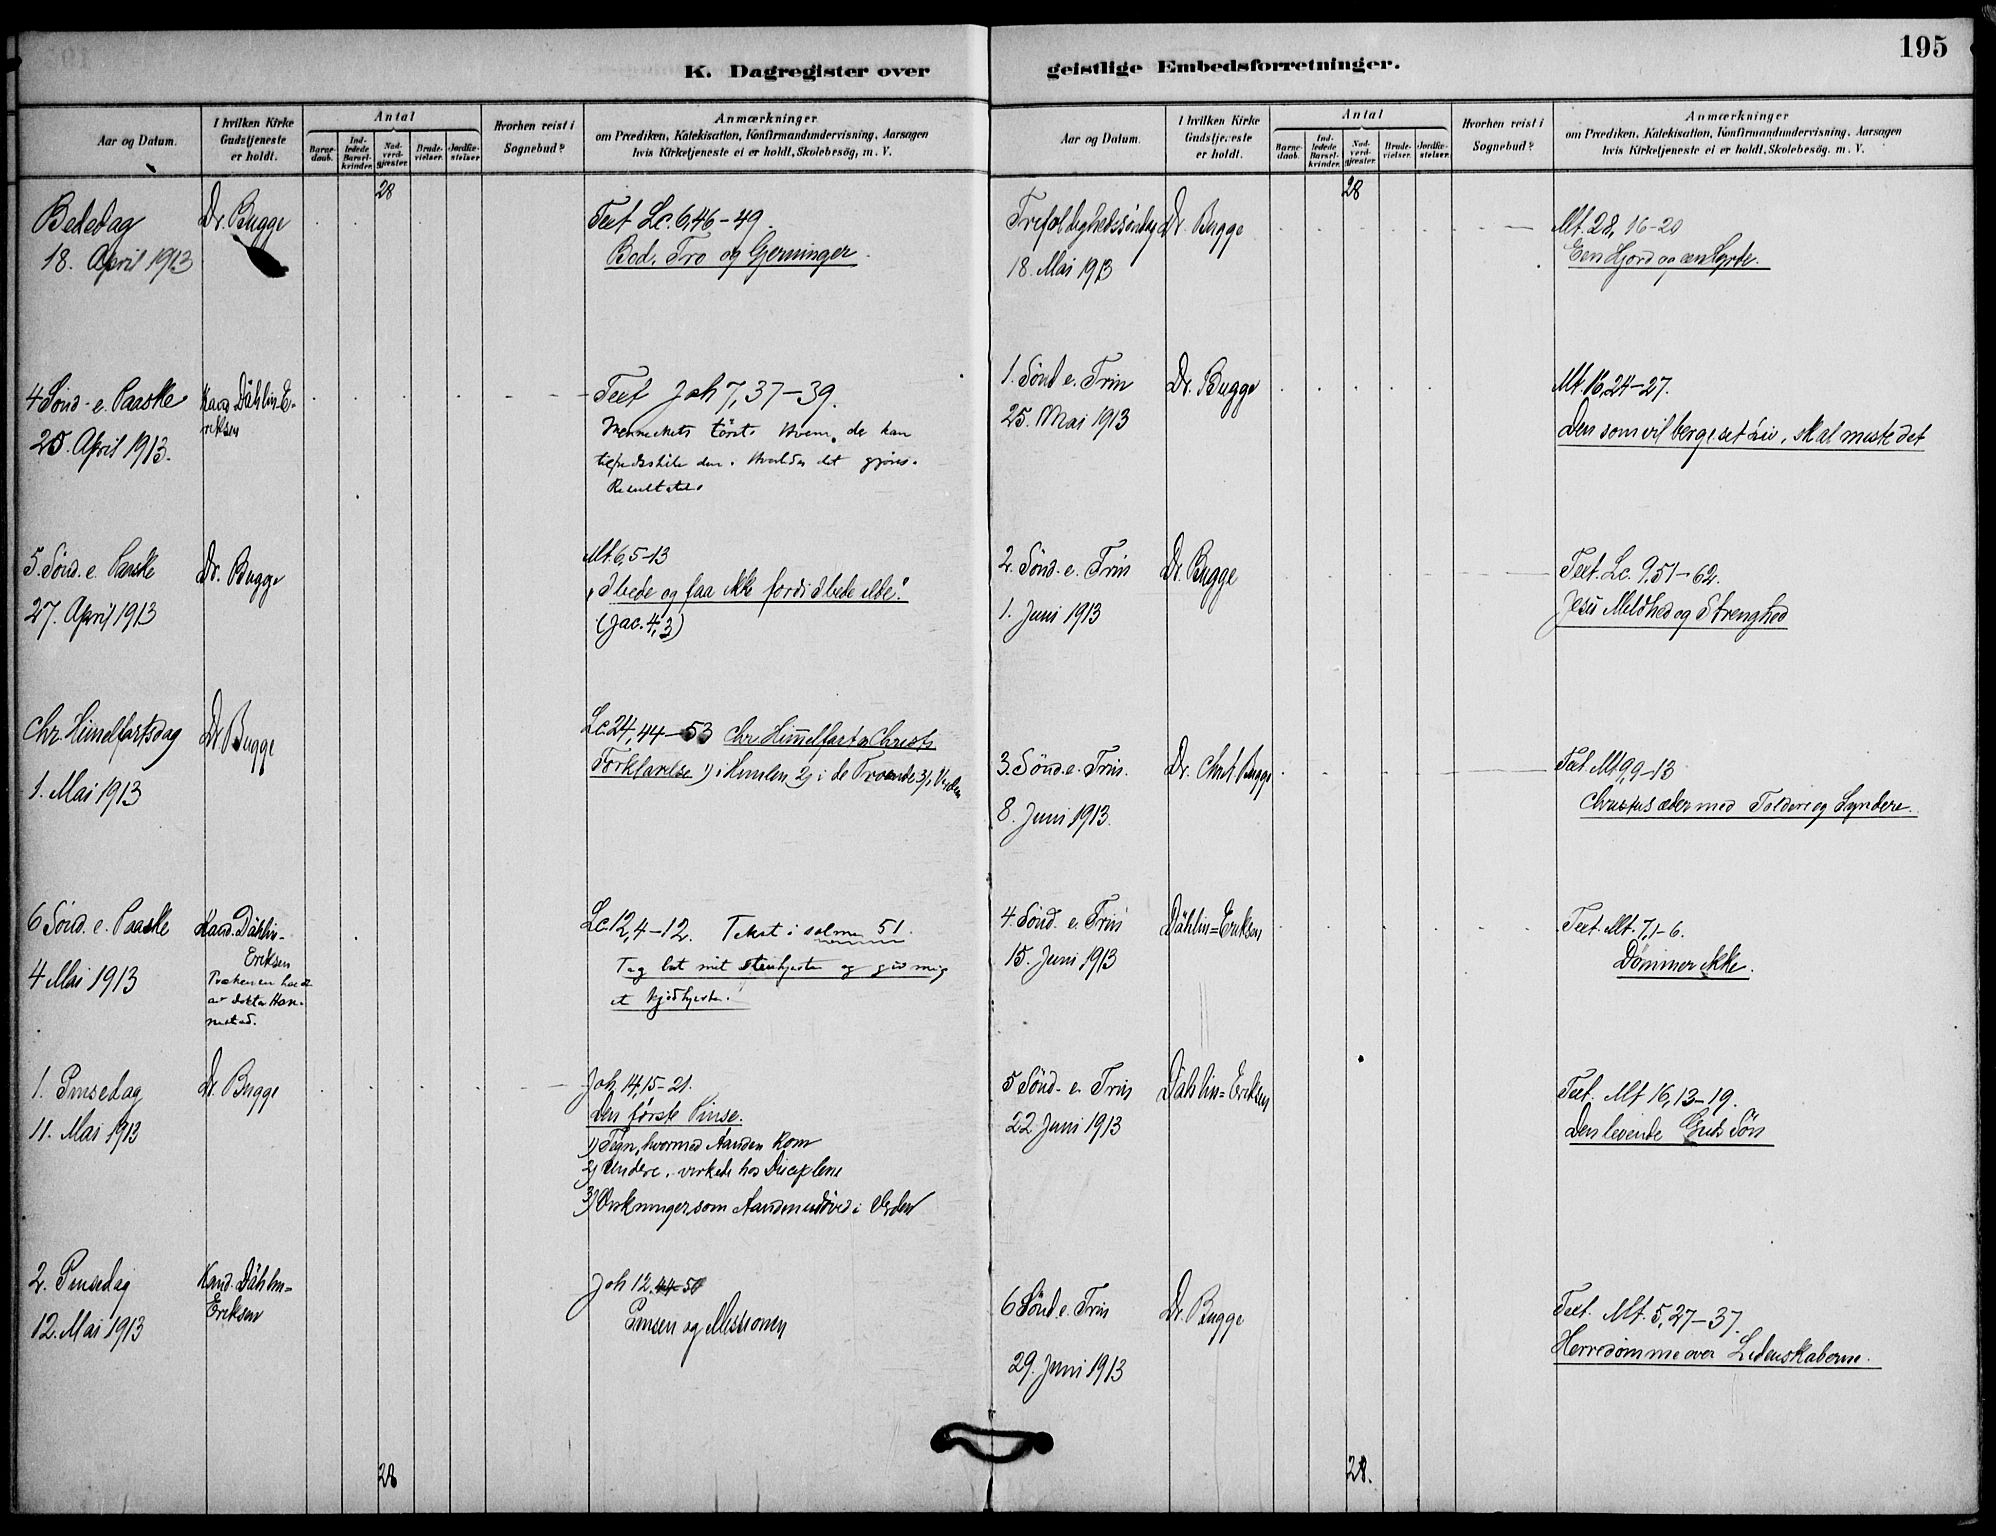 195
K. Dagregister over geistlige Embedsforretninger.
Aar og Datum.
I hvilken Kirke
Gudstjeneste
er holdt.
Antal
Barne-
daab.
Ind-
ledede
Barsel-
kvinder.
Nad-
verd-
gjæster.
Brude-
vielser.
Jordfæ-
stelser
Hvorhen reist i
Sognebud?
Anmærkninger
om Prædiken, Katekisation, Konfirmandundervisning, Aarsagen
hvis Kirketjeneste ei er holdt, Skolebesøg, m. V.
28
Bededag
18. April 1913
Dr. Bugge
Text Lc. 6,46-49.
Bod, Tro og Gjerninger.
4 Sönd. e. Paaske
20. April 1913.
Kand. Dåhlin-E-
riksen
Text Joh 7,37-39.
Menneskets törst. Hvem, der kan
tilfredsstille den. Hvordan det gjöres.
Resultatet.
5. Sönd. e. Paaske
27. April 1913
Dr. Bugge
Mt. 6,5-13
"I bede og faa ikke fordi I bede ilde."
(Jac. 4,3)
Chr. Himelfartsdag
1. Mai 1913
Dr Bugge
Lc. 24,44-53 Chr. Himelfart og Christi
Forklarelse 1) i Himlen 2) i de Troende 3) i Verden
6 Sönd. e. Paaske
4 Mai 1913
Kand. Dåhlin-
Eriksen
Prækenen holdt
av doktor Han-
nestad.
Lc. 12,4-12. Tekst i salmen 51.
Tag bort mit stenhjerte og giv mig
et kjödhjerte.
1. Pinsedag
11. Mai 1913
Dr Bugge
Joh. 14,15-21.
Den förste Pinse.
1) Tegn, hvormed Aanden kom
2) Undere, virkede hos Disciplene
3) Virkninger som Aanden udöved i Verden
2. Pinsedag
12. Mai 1913
Kand. Dåhlin=
Eriksen
Joh 12,44-50
Pinsen og Missionen
28
Aar og Datum.
I hvilken Kirke
Gudstjeneste
er holdt.
Antal
Barne-
daab.
Ind-
ledede
Barsel-
kvinder.
Nad-
verd-
gjæster.
Brude-
vielser.
Jordfæ-
stelser
Hvorhen reist i
Sognebud?
Anmærkninger
om Prædiken, Katekisation, Konfirmandundervisning, Aarsagen
hvis Kirketjeneste ei er holdt, Skolebesøg, m. V.
28
Trefoldighedssöndag
18. Mai 1913
Dr. Bugge
Mt. 28, 16-20
Een Hjord og een Hyrde.
1. Sönd e. Trin
25. Mai 1913
Dr. Bugge
Mt. 16,24-27.
Den som vil berge set Liv, skal miste det
2. Sönd. e. Trin
1. Juni 1913
Dr. Bugge
Text. Lc. 9,51-62.
Jesu Mildhed og Strenghed
3. Sönd. e. Trin.
8. Juni 1913.
Dr. Chr. Bugge
Text Mt 9,9-13
Christus æder med Toldere og Syndere.
4. Sönd. e. Trin
15. Juni 1913
Dåhlin=Eriksen
Text. Mt. 7,1-6.
Dömmer ikke.
5 Sönd. e. Trin
22 Juni 1913
Dåhlin=Eriksen
Text. Mt 16,13-19.
Den levende Guds Sön
6 Sönd. e. Trin
29. Juni 1913
Dr. Bugge
Text. Mt. 5,27-37.
Herredömme over Lidenskaberne.
28.